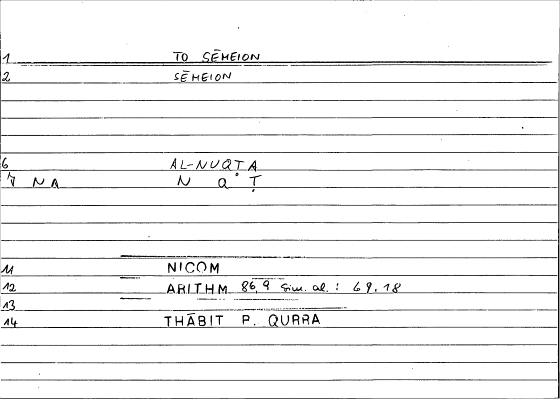 1 TO SĒMEION
2 SĒMEION
6 AL-NUQṬA
7 NA N Q Ṭ
11 NICOM
12 ARITHM 86,9 Sim. al. : 69.18
13
14 THĀBIT P. QURRA